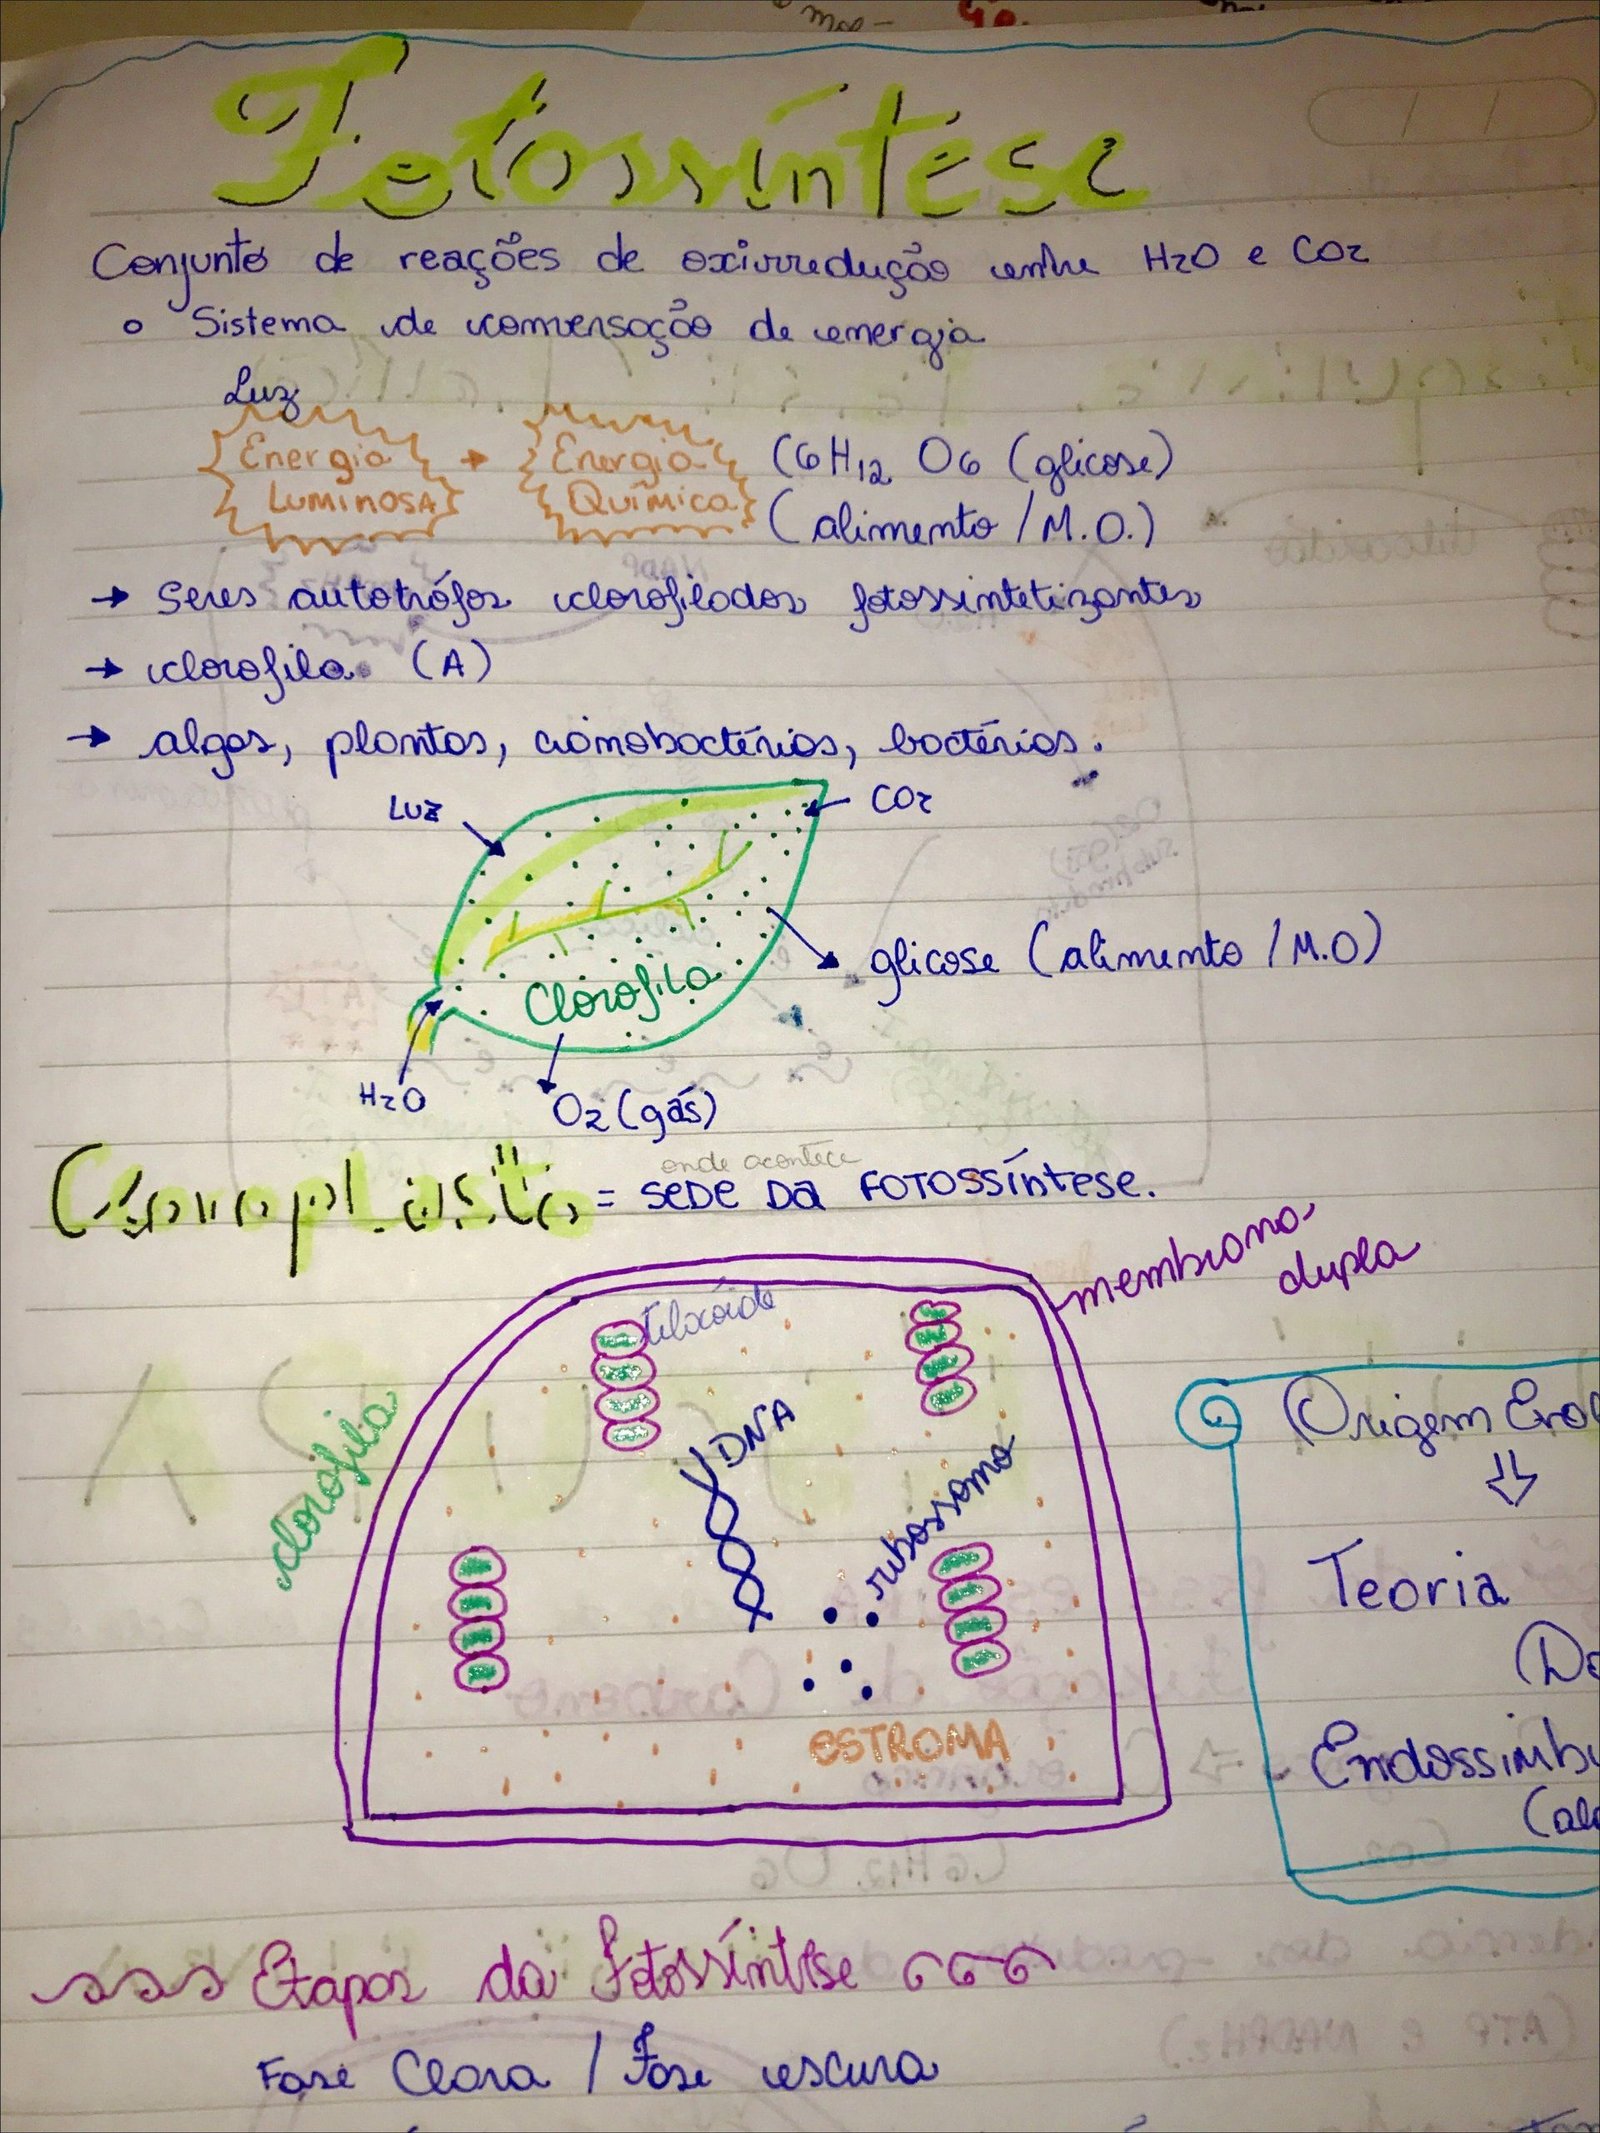 Fotossíntese
Conjunto de reações de oxirredução entre H2O e CO2
Sistema de conversação de energia
Luz
Energia → Energia C6H12O6 (glicose)
Luminosa Química (alimento / M.O.)
→ Seres autotrófos clorofilados fotossintetizantes
→ clorofila (A)
→ algas, plantas, cianobactérias, bactérias.
LUZ
CO2
glicose (alimento / M.O)
Clorofila
H2O
O2 (gás)
onde acontece
Cloroplasto = SEDE DA FOTOSSÍNTESE.
membrana
dupla
tilacóide
clorofila
DNA
ribossomo
ESTROMA
Origem Evol
Teoria
Da
Endossimbi
Etapas da fotossíntese
Fase Clara / Fase escura